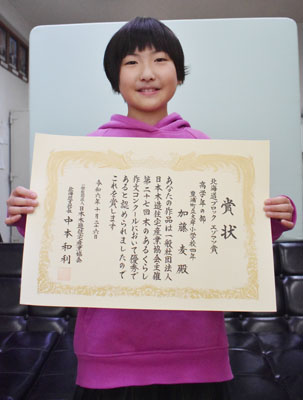 賞状
北海道ブロック エフエフ賞
高学年の部
加藤 麦 殿
あなたの作品は一般社団法人
日本木造住宅産業協会主催
第二十七回木のあるくらし
作文コンクールにおいて優秀で
あると認められましたので
これを賞します
令和六年十月二十六日
一般社団法人日本木造住宅産業協会
中本和利